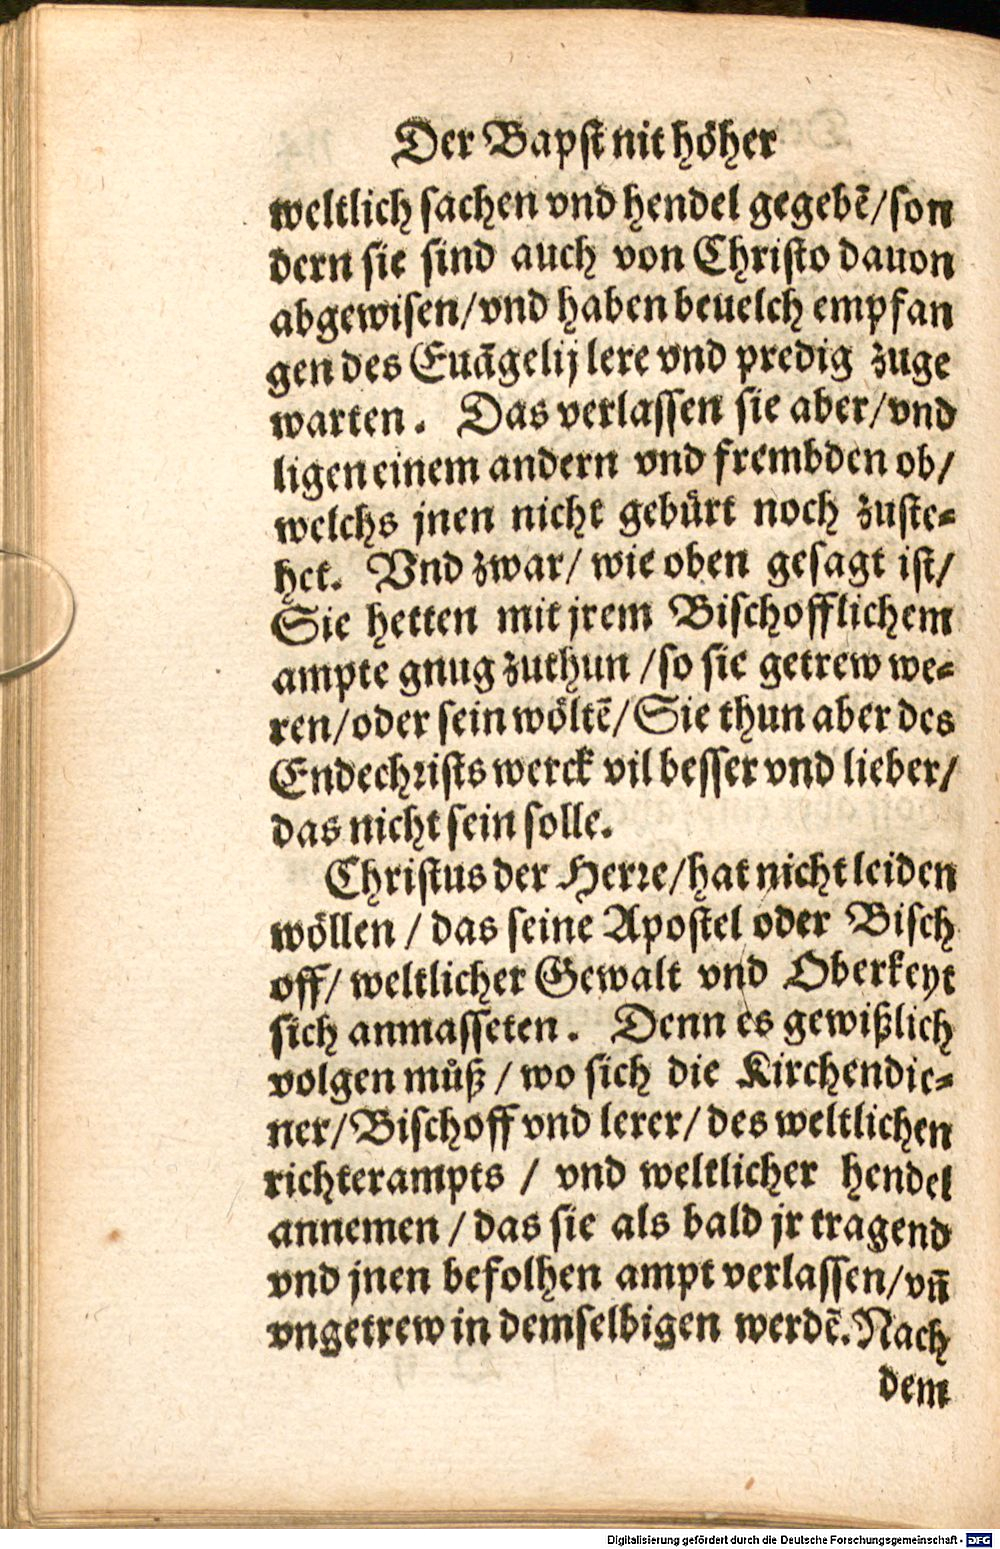 Der Bapst nit höher
weltlich sachen vnd hendel gegebẽ/son
dern sie sind auch von Christo dauon
abgewisen/vnd haben beuelch empfan
gen des Euãgelij lere vnd predig zuge
warten. Das verlassen sie aber/vnd
ligen einem andern vnd frembden ob/
welchs jnen nicht gebürt noch zuste-
het. Vnd zwar/ wie oben gesagt ist/
Sie hetten mit jrem Bischofflichem
ampte gnug zuthun /so sie getrew we-
ren/oder sein wöltẽ/Sie thun aber des
Endechrists werck vil besser vnd lieber/
das nicht sein solle.
Christus der Herre/hat nicht leiden
wöllen / das seine Apostel oder Bisch
off/ weltlicher Gewalt vnd Oberkeyt
sich anmasseten. Denn es gewißlich
volgen můß / wo sich die Kirchendie-
ner/Bischoff vnd lerer/ des weltlichen
richterampts / vnd weltlicher hendel
annemen / das sie als bald jr tragend
vnd jnen befolhen ampt verlassen/vñ
vngetrew in demselbigen werdẽ. Nach
dem
Digitalisierung gefördert durch die Deutsche Forschungsgemeinschaft - DFG